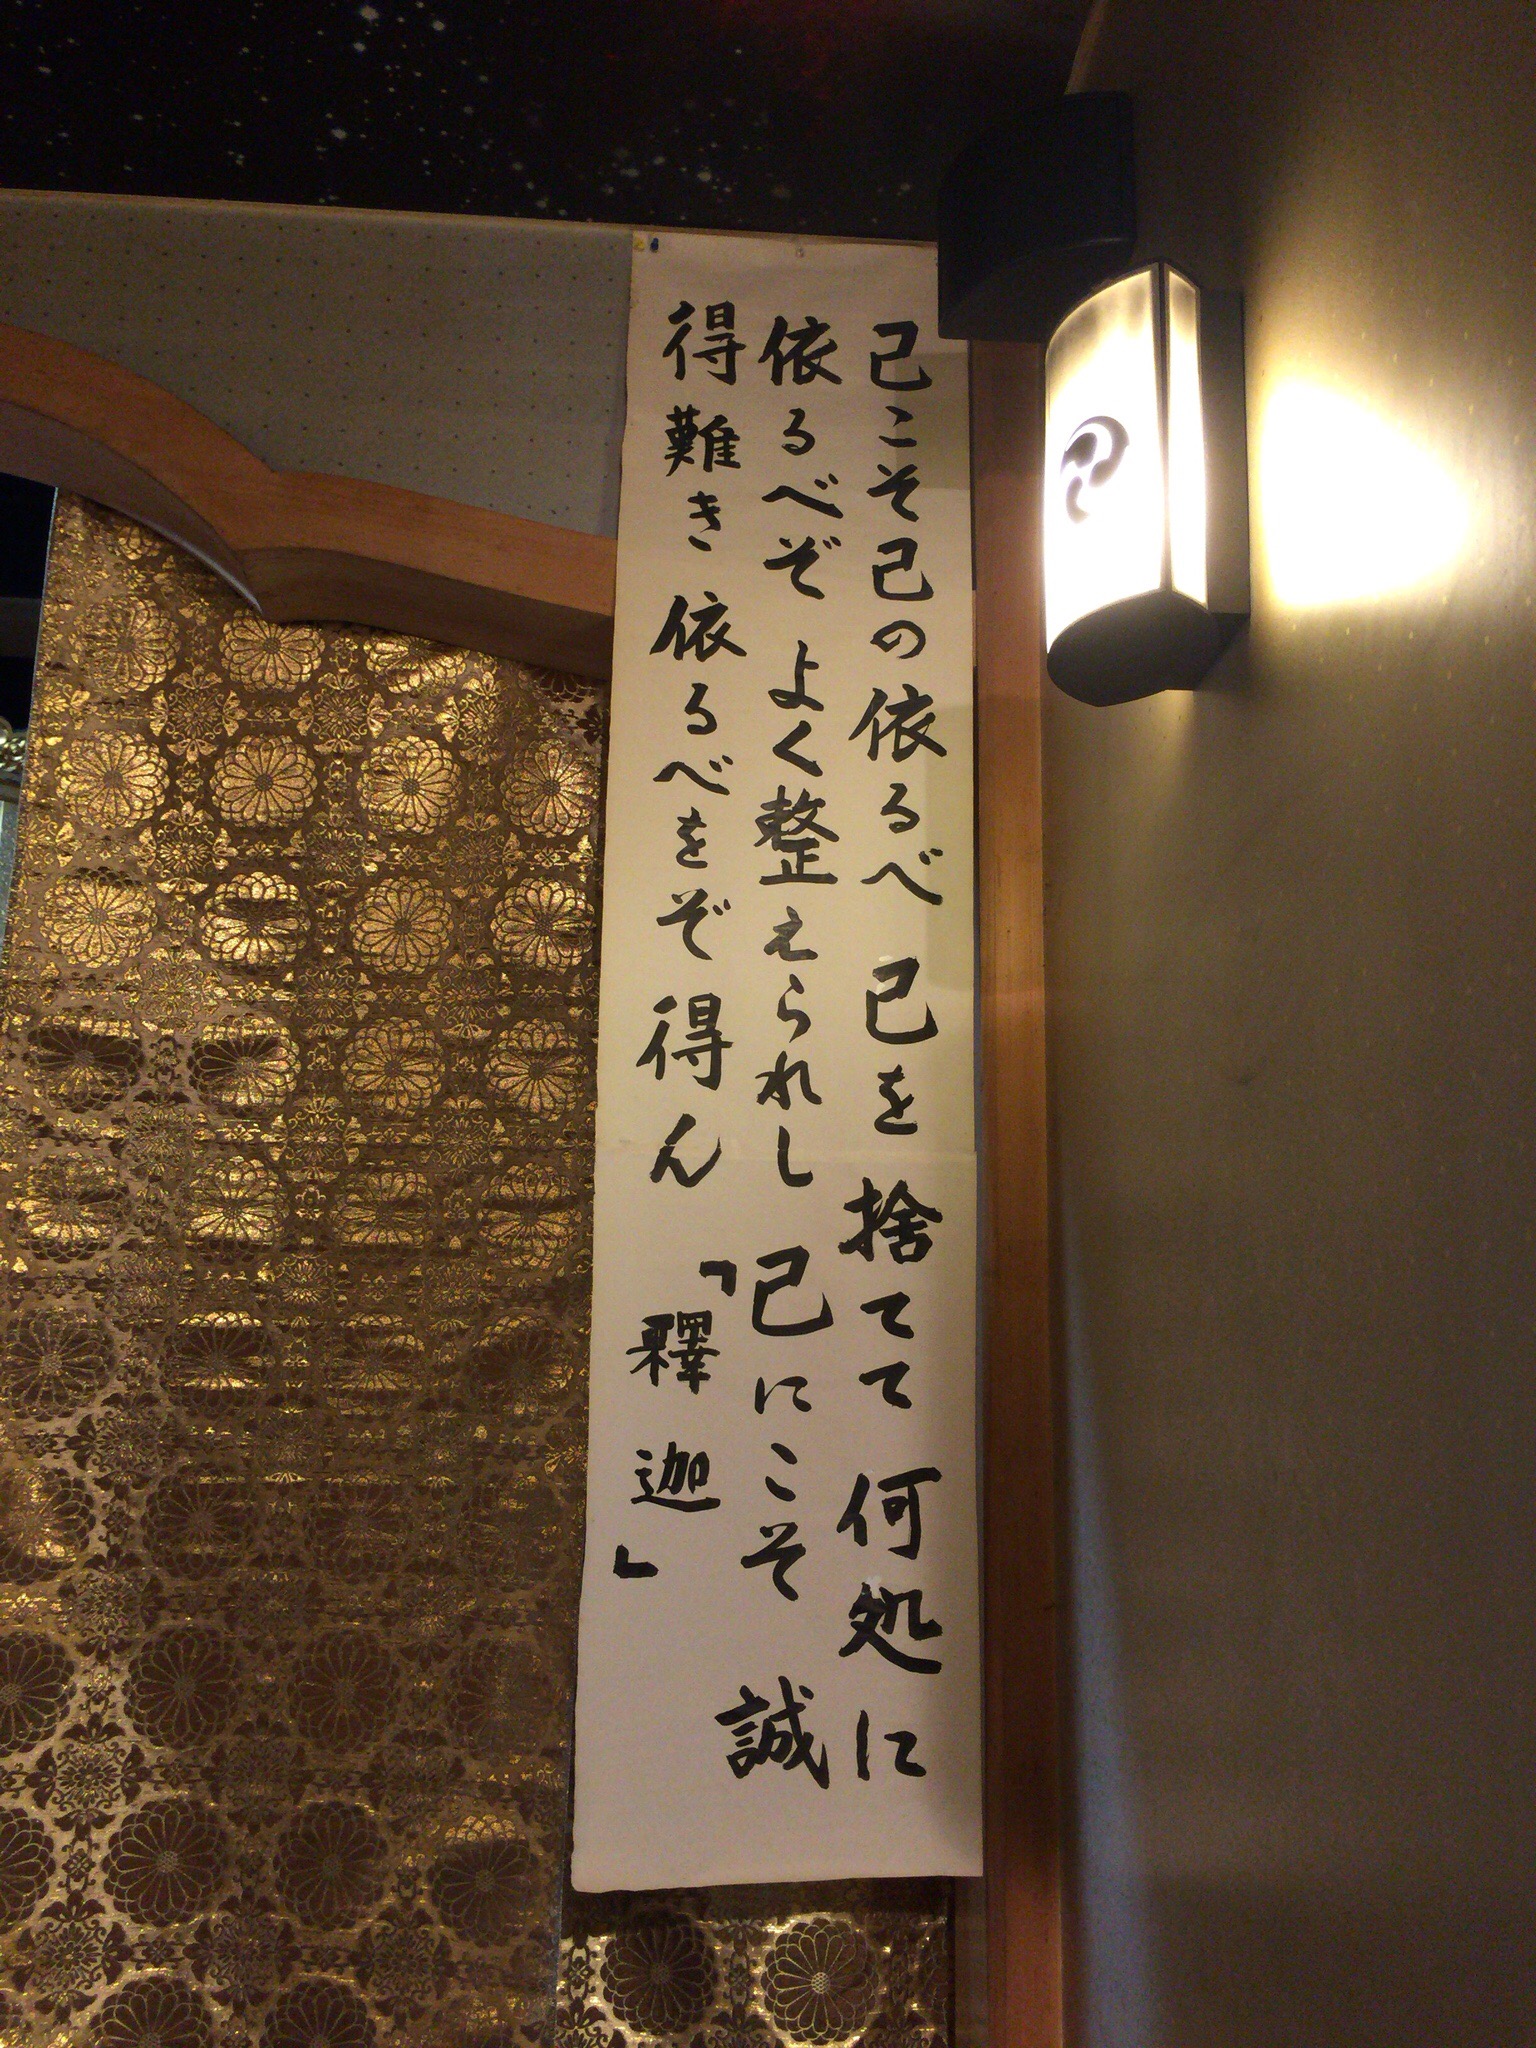 己こそ己の依るべ 己を捨てて何処に
依るべぞ よく整えられし 己にこそ 誠
得難き依るべをぞ得ん 「釋迦」